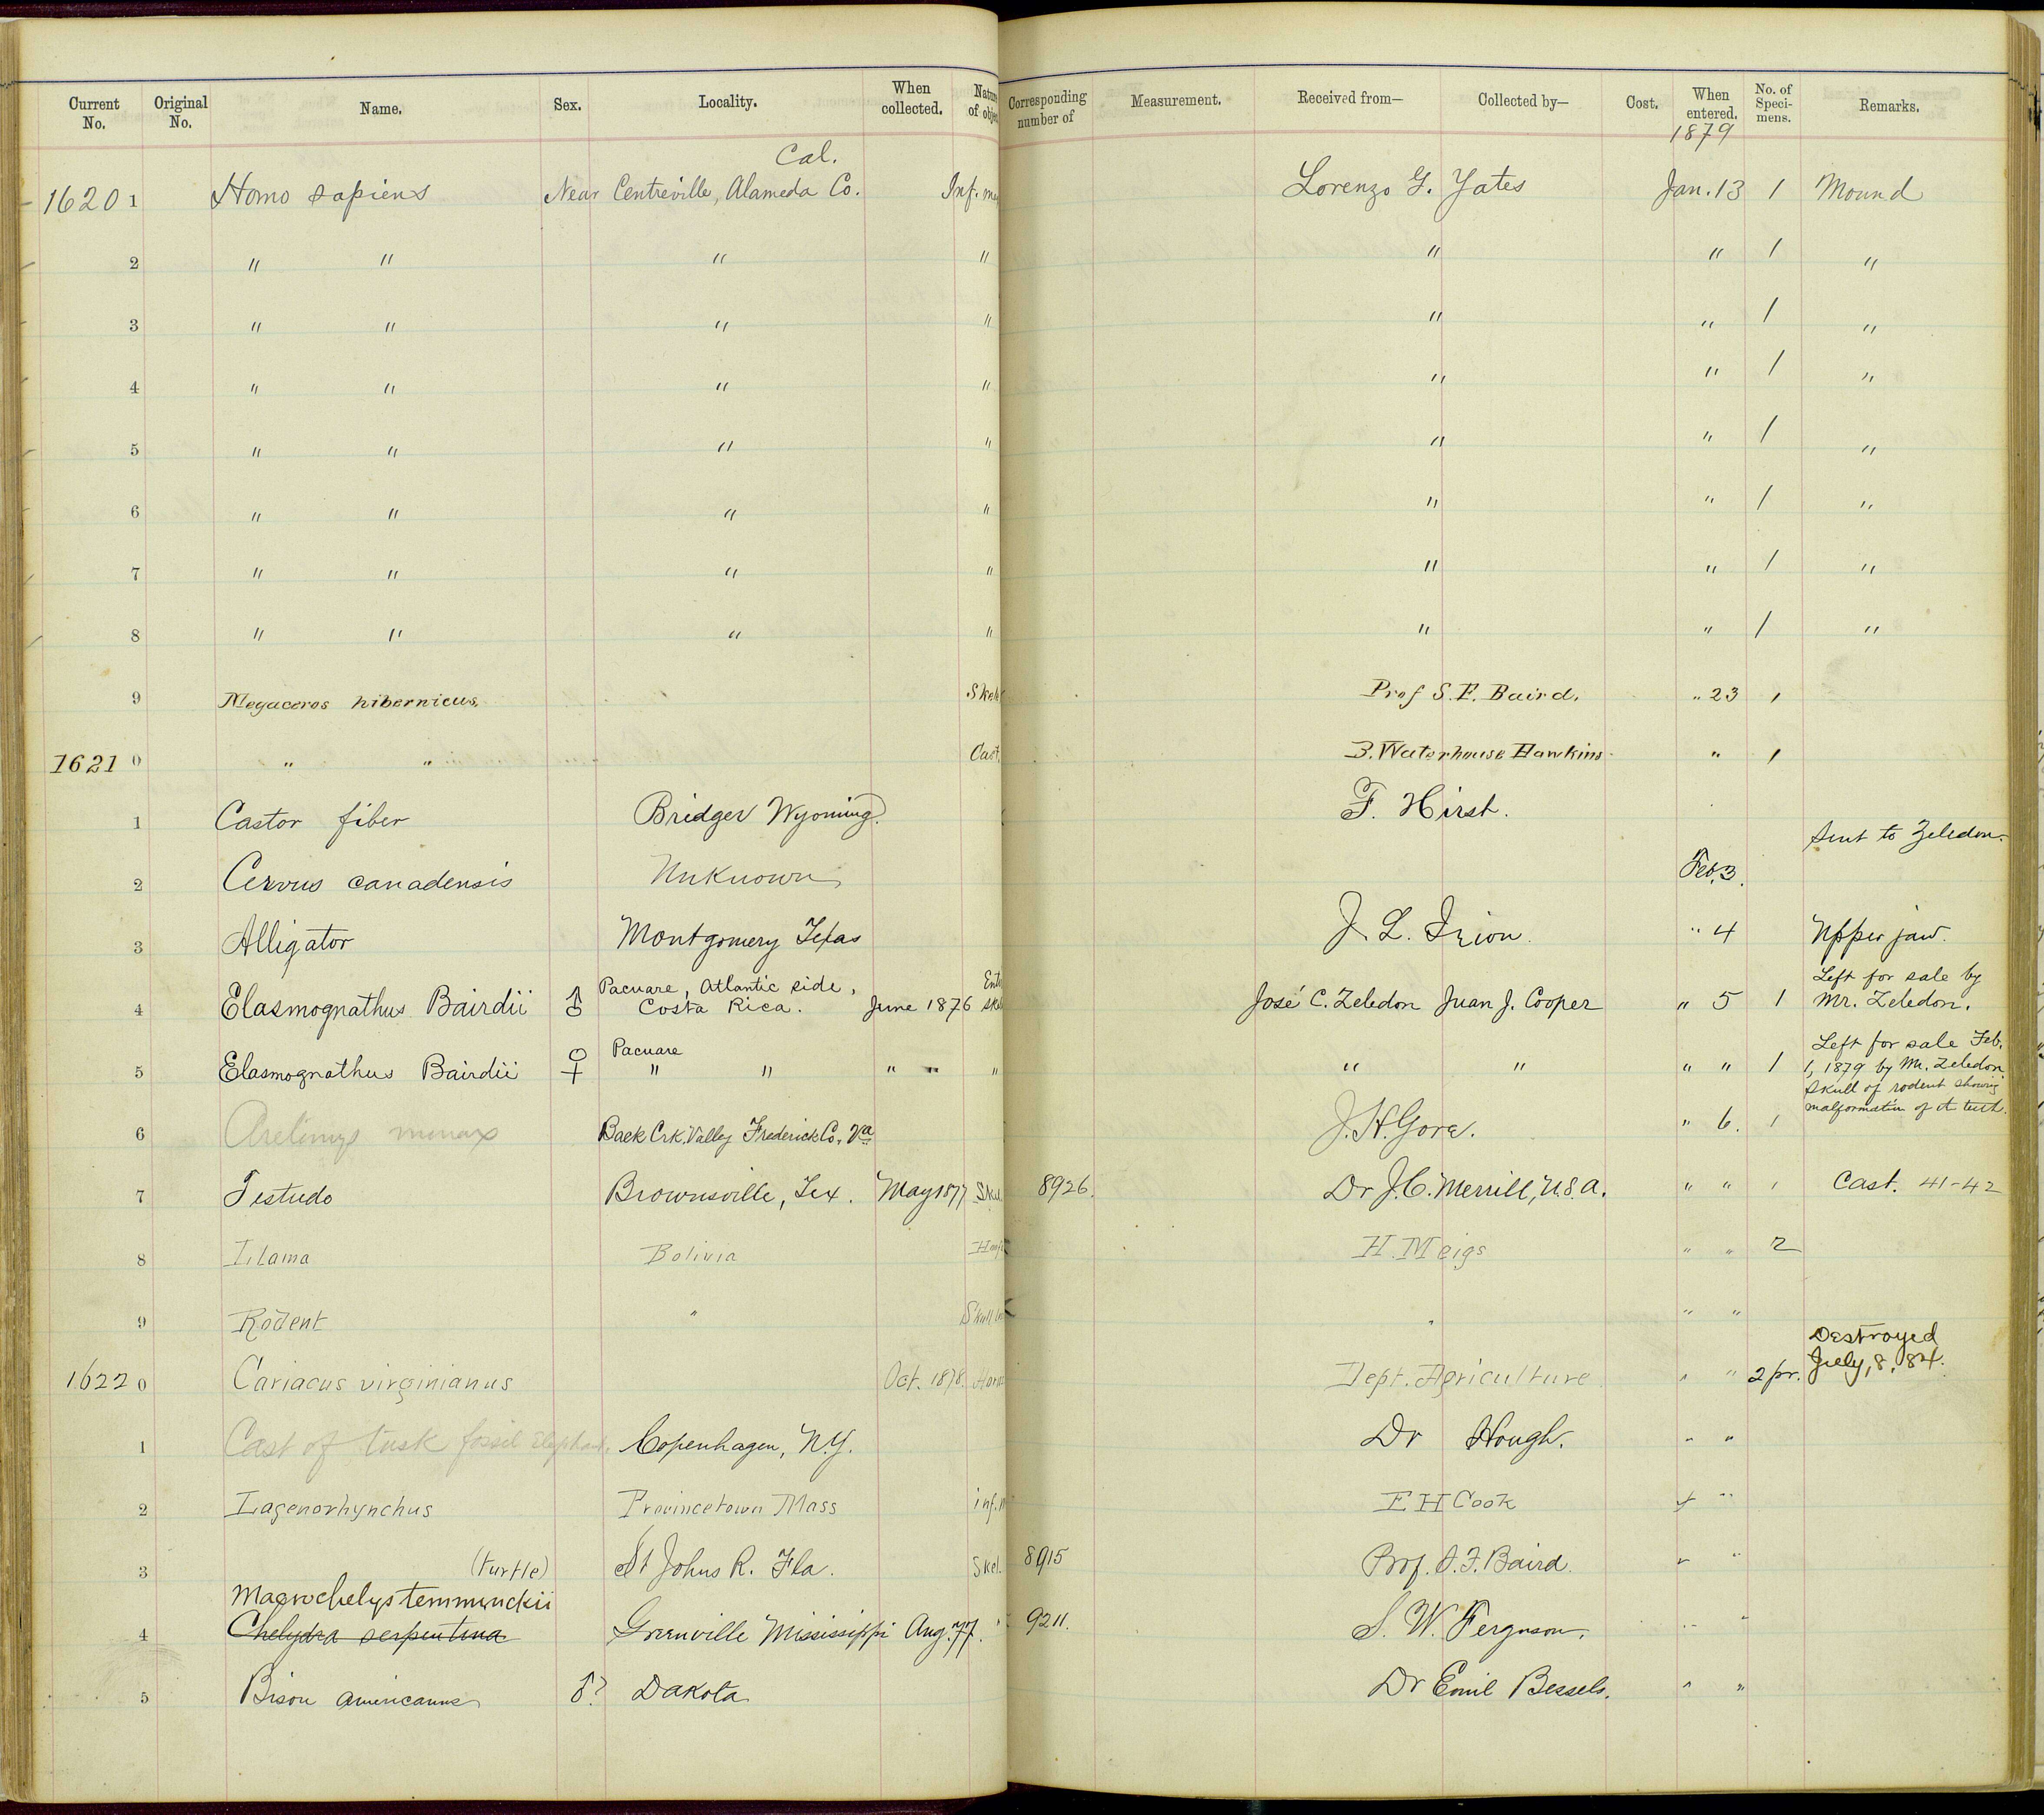 Current No. Original No. Name. Sex. Locality. When collected. Nature of object Corresponding number of Measurement. Received from— Collected by— Cost. When entered. No. of Speci-mens. Remarks.
1879
Cal.
16201 Homo sapiens Near Centreville, Alameda Co. Inf. Lorenzo G. Yates Jan. 13 1 Mound
2 " " " " " " 1 "
3 " " " " " " 1 "
4 " " " " " " 1 "
5 " " " " " " 1 "
6 " " " " " " 1 "
7 " " " " " " 1 "
8 " " " " " " 1 "
9 Megaceros hibernicus. Skel Prof S. F. Baird. " 23 1
16210 " " Cast. B. Waterhouse Hawkins " 1
1 Castor fiber Bridger Wyoming. F. Hirst.
Sent to Zeledon.
2 Cervus canadensis Unknown Feb. 3.
3 Alligator Montgomery Texas J. L. Irion. " 4 Upper jaw.
4 Elasmognathus Bairdii ♂ Pacuare, Atlantic side, Costa Rica. June 1876 José C. Zeledon Juan J. Cooper " 5 1 Left for sale by Mr. Zeledon.
5 Elasmognathus Bairdii ♀ Pacuare " " " " " " " " " 1 Left for sale Feb. 1, 1879 by Mr. Zeledon.
6 Arctomys monax Back Crk. Valley Frederick Co, Va J. H. Gore. " 6. 1 Skull of rodent showing malformation of teeth.
7 Testudo Brownsville, Tex. May 1877 Skel 8926. Dr J. C. Merrill, U.S.A. " " 1 Cast. 41-42
8 Llama Bolivia H. Meigs " " 2
9 Rodent " Skull " " "
16220 Cariacus virginianus Oct. 1878. Dept. Agriculture " " 2 pr. Destroyed July, 8, 84.
1 Cast of tusk fossil Elephant. Copenhagen, N.Y. Dr Hough. " "
2 Lagenorhynchus Provincetown Mass inf. E H Cook " "
3 (turtle) St Johns R. Fla. Skel. 8915 Prof. S. F. Baird. " "
Macrochelys temminckii
4 Chelydra serpentina Greenville Mississippi Aug. 77. " 9211. S. W. Ferguson. " "
5 Bison americanus ♂? Dakota Dr Emil Bessels. " "